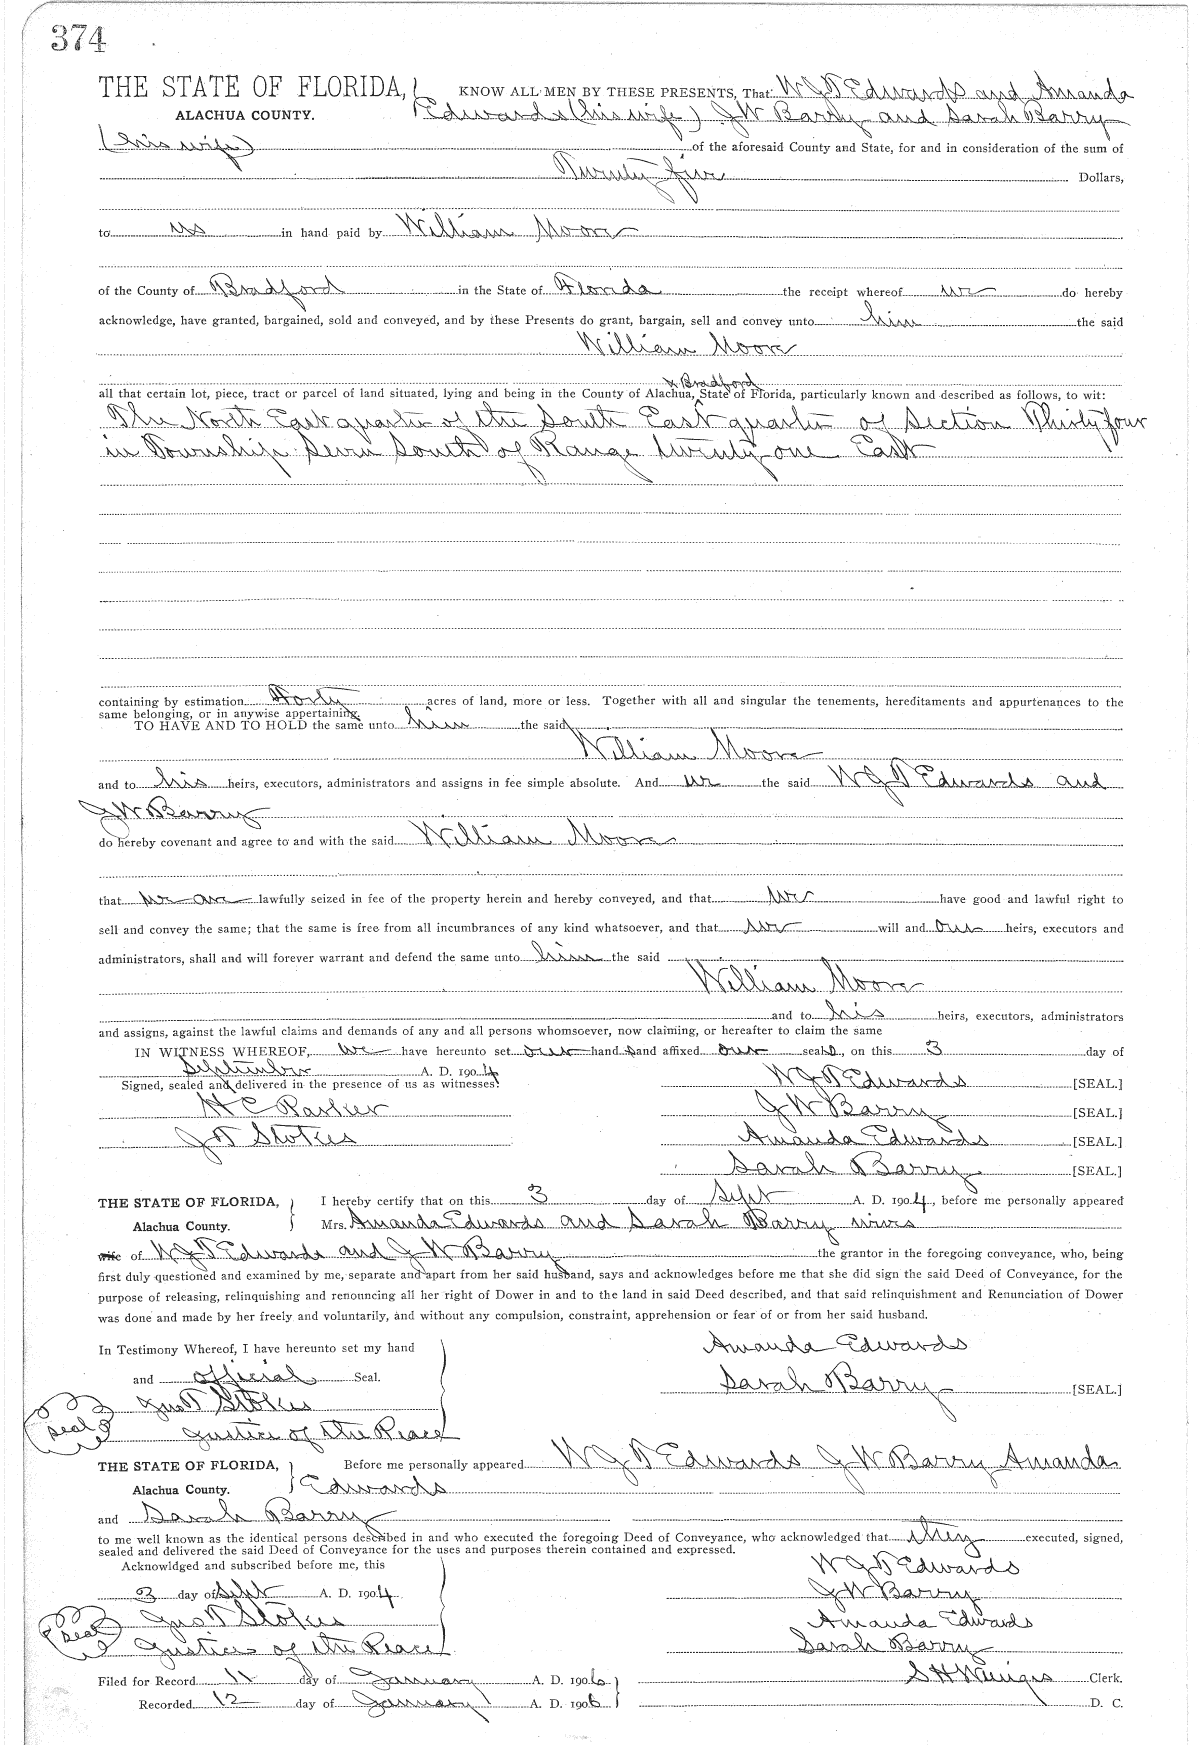 374
THE STATE OF FLORIDA, KNOW ALL MEN BY THESE PRESENTS, That W J T Edwards and Amanda
ALACHUA COUNTY. Edwards (his wife) J W Barry and Sarah Barry
(his wife) of the aforesaid County and State, for and in consideration of the sum of
Twenty five Dollars,
to us in hand paid by William Moore
of the County of Bradford in the State of Florida the receipt whereof we do hereby
acknowledge, have granted, bargained, sold and conveyed, and by these Presents do grant, bargain, sell and convey unto him the said
William Moore
& Bradford
all that certain lot, piece, tract or parcel of land situated, lying and being in the County of Alachua, State of Florida, particularly known and described as follows, to wit:
The North East quarter of the South East quarter of Section Thirty four
in Township Seven South of Range twenty one East
containing by estimation Forty acres of land, more or less. Together with all and singular the tenements, hereditaments and appurtenances to the
same belonging, or in anywise appertaining.
TO HAVE AND TO HOLD the same unto him the said
William Moore
and to his heirs, executors, administrators and assigns in fee simple absolute. And we the said W J T Edwards and
J W Barry
do hereby covenant and agree to and with the said William Moore
that we are lawfully seized in fee of the property herein and hereby conveyed, and that we have good and lawful right to
sell and convey the same; that the same is free from all incumbrances of any kind whatsoever, and that we will and our heirs, executors and
administrators, shall and will forever warrant and defend the same unto him the said
William Moore
and to his heirs, executors, administrators
and assigns, against the lawful claims and demands of any and all persons whomsoever, now claiming, or hereafter to claim the same
IN WITNESS WHEREOF, we have hereunto set our hands and affixed our seals, on this 3 day of
September A. D. 1904
Signed, sealed and delivered in the presence of us as witnesses: W J T Edwards [SEAL.]
H C Parker J W Barry [SEAL.]
J T Stokes Amanda Edwards [SEAL.]
Sarah Barry [SEAL.]
THE STATE OF FLORIDA, I hereby certify that on this 3 day of Sept A. D. 1904, before me personally appeared
Alachua County. Mrs. Amanda Edwards and Sarah Barry wives
wife of W J T Edwards and J W Barry the grantor in the foregoing conveyance, who, being
first duly questioned and examined by me, separate and apart from her said husband, says and acknowledges before me that she did sign the said Deed of Conveyance, for the
purpose of releasing, relinquishing and renouncing all her right of Dower in and to the land in said Deed described, and that said relinquishment and Renunciation of Dower
was done and made by her freely and voluntarily, and without any compulsion, constraint, apprehension or fear of or from her said husband.
In Testimony Whereof, I have hereunto set my hand Amanda Edwards
and official Seal. Sarah Barry [SEAL.]
Jno T Stokes
seal Justice of the Peace
THE STATE OF FLORIDA, Before me personally appeared W J T Edwards J W Barry Amanda
Alachua County. Edwards
and Sarah Barry
to me well known as the identical persons described in and who executed the foregoing Deed of Conveyance, who acknowledged that they executed, signed,
sealed and delivered the said Deed of Conveyance for the uses and purposes therein contained and expressed.
Acknowldged and subscribed before me, this W J T Edwards
3 day of Sept A. D. 1904 J W Barry
seal Jno T Stokes Amanda Edwards
Justice of the Peace Sarah Barry
Filed for Record 11 day of January A. D. 1906 S H Wienges Clerk.
Recorded 12 day of January A. D. 1906 D. C.